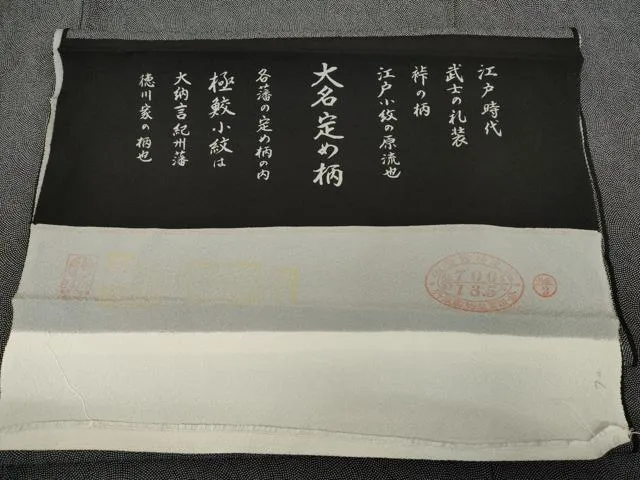 江戸時代
武士の礼装
裃の柄
江戸小紋の原流也
大名定め柄
各藩の定め柄の内
極鮫小紋は
大納言紀州藩
徳川家の柄也
700
135